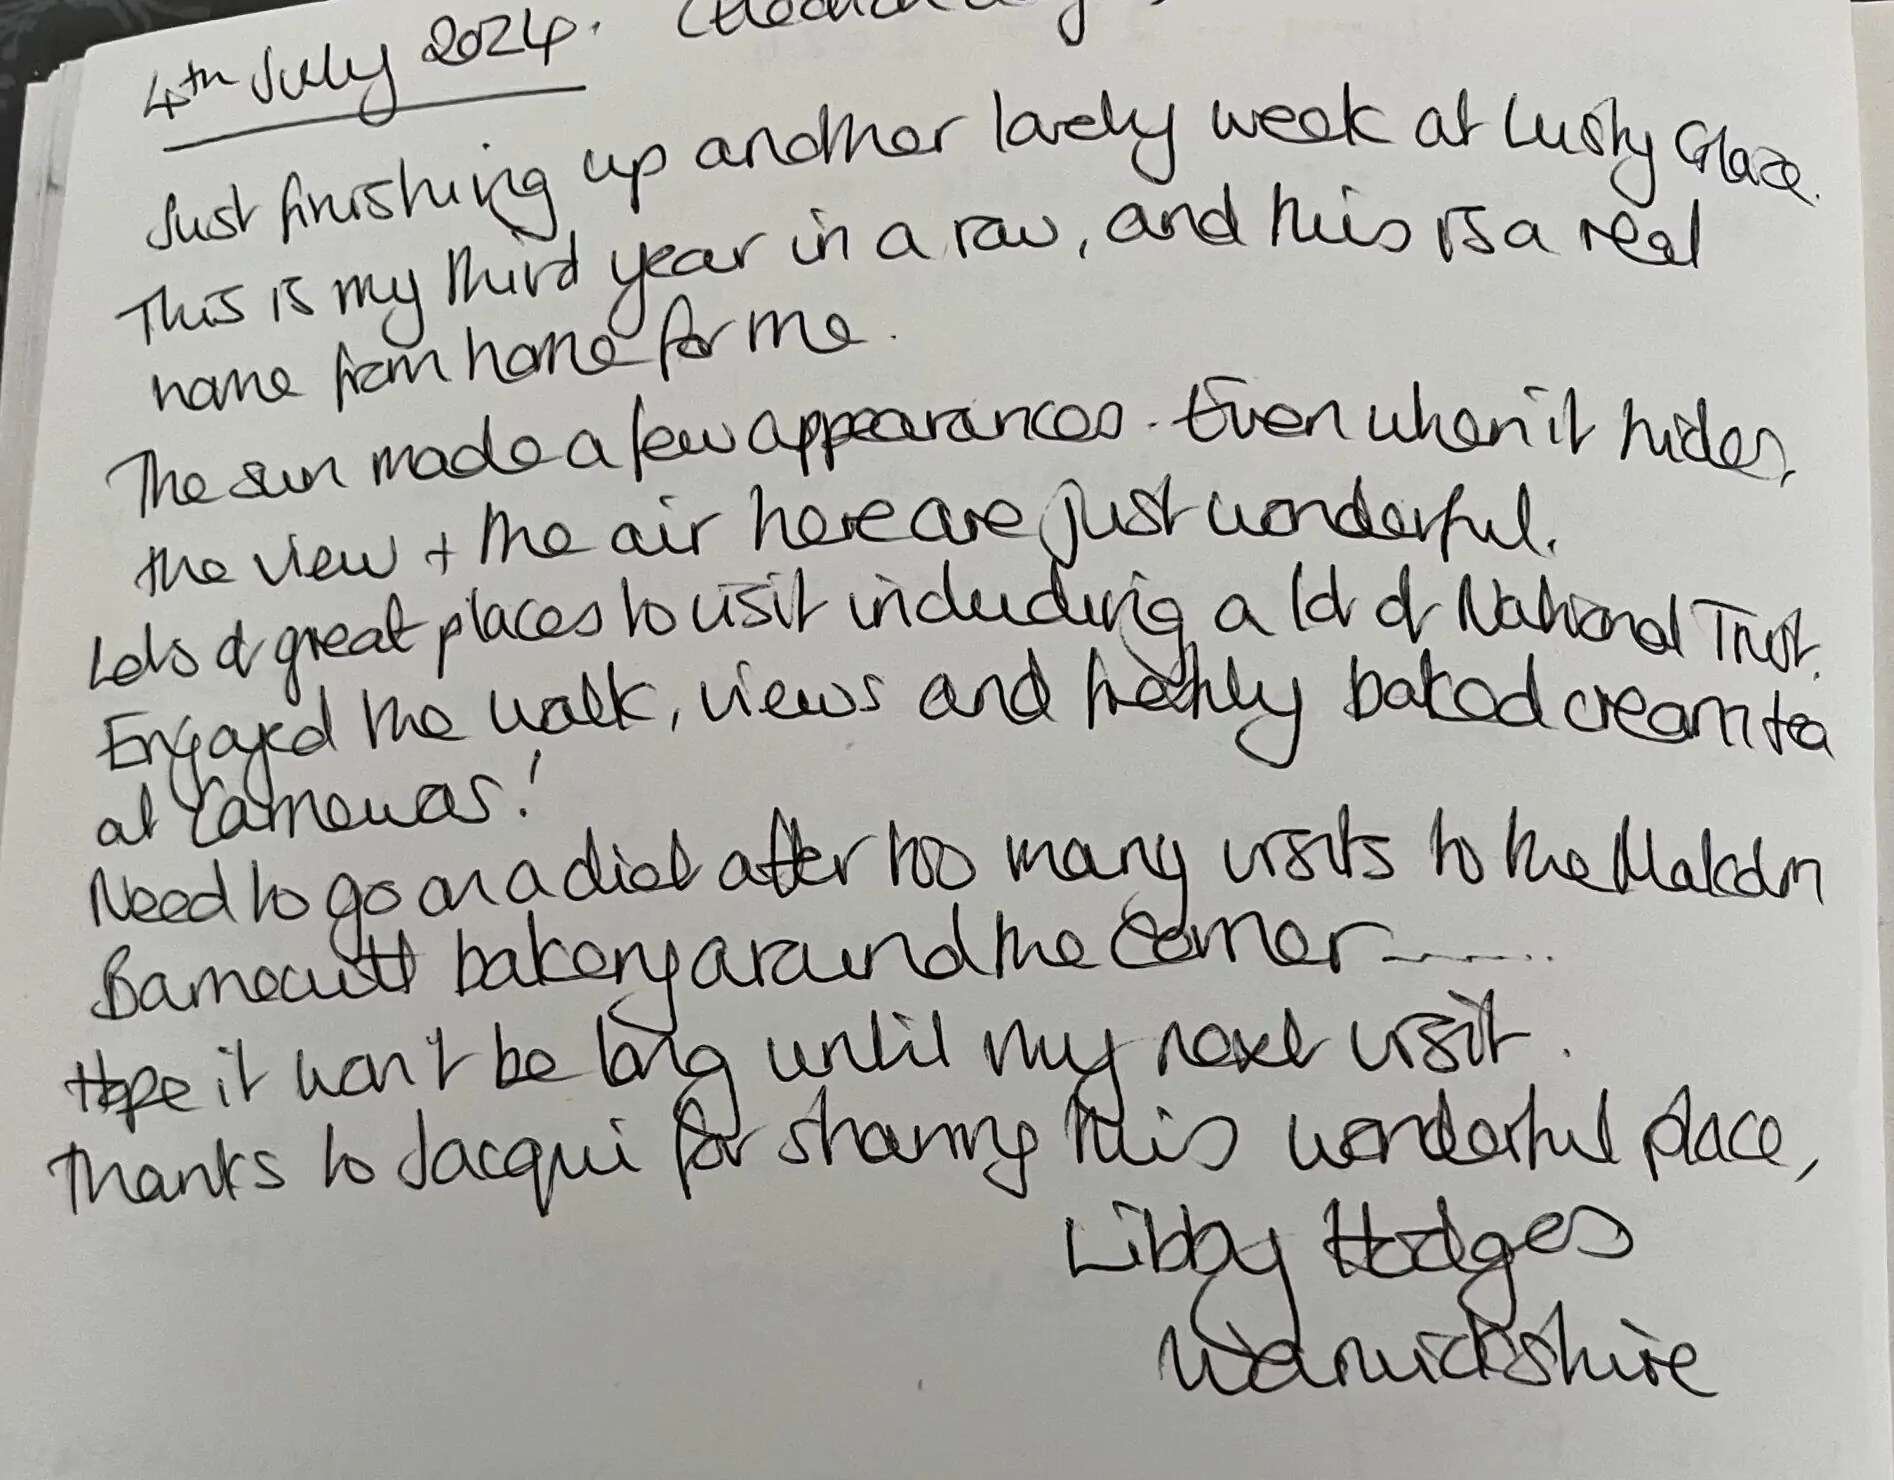 4th July 2024. (Election Day)
Just finishing up another lovely week at Lusty Glaze.
This is my third year in a row, and this is a real
home from home for me.
The sun made a few appearances. Even when it hides,
the view + the air here are just wonderful.
Lots of great places to visit including a lot of National Trust.
Enjoyed the walk, views and freshly baked cream tea
at Carnewas!
Need to go on a diet after too many visits to the Malcolm
Barnecutt bakery around the corner.......
Hope it won't be long until my next visit.
Thanks to Jacqui for sharing this wonderful place,
Libby Hodges
Warwickshire